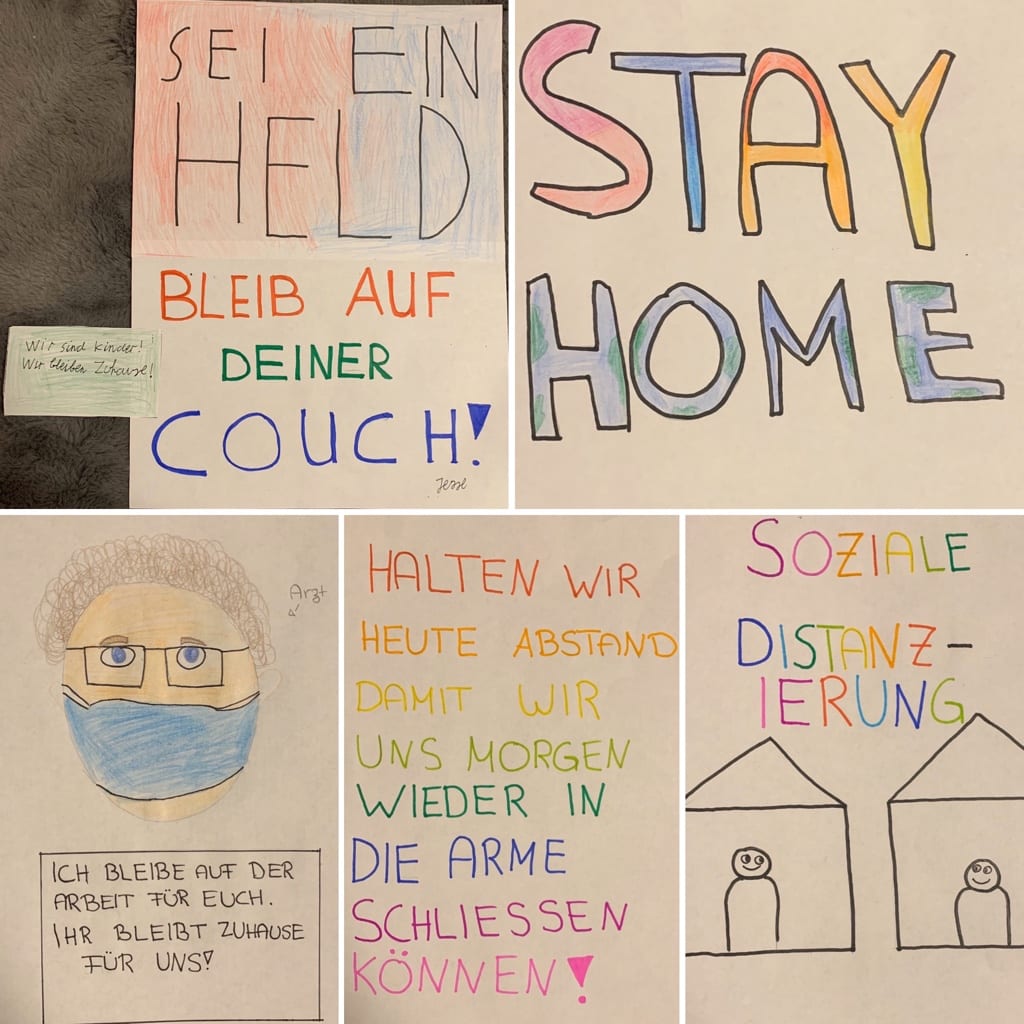 SEI EIN
HELD
BLEIB AUF
DEINER
COUCH!
Jesse
Wir sind kinder!
Wir bleiben Zuhause!
STAY
HOME
Arzt
ICH BLEIBE AUF DER
ARBEIT FÜR EUCH.
IHR BLEIBT ZUHAUSE
FÜR UNS!
HALTEN WIR
HEUTE ABSTAND
DAMIT WIR
UNS MORGEN
WIEDER IN
DIE ARME
SCHLIESSEN
KÖNNEN!
SOZIALE
DISTANZ-
IERUNG